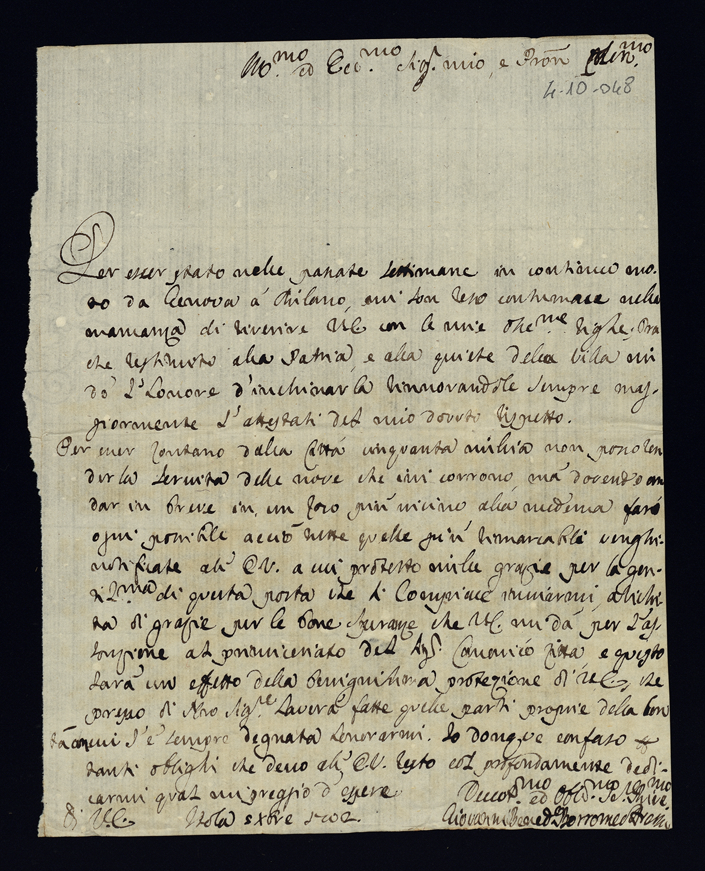 Ill.mo ed Ecc.mo Sig.r mio, e Pron
4-10-048
Per esser stato nelle passate settimane in continuo mo-
to da Genova à Milano, mi son reso contumace nella
mancanza di riverire V.E. con le mie
che restituito alla Patria, e alla quiete della Villa mi
dò l'honore d'inchinarla rinnovandole sempre mag-
giormente l'attestati del mio dovuto rispetto.
Per esser lontano dalla Città cinquanta miglia non posso ren
derla servita delle nove che qui corrono, mà dovendo an
dar in breve in un loco più vicino alla medema farò
ogni possibile acciò tutte quelle più rimarcabili venghi-
notificate all' E.V. a cui protesto mille grazie per la gen-
til.ma di questa posta che si compiace inviarmi,
ta di grazie per le bone speranze che V.E. mi dà per l'as-
sunzione al primiceriato del Sig.r Canonico e questo
sarà un effetto della benignissima protezione di V.E. che
presso di Nro Sig.re haverà fatte quelle parti proprie della bon
tà con cui s'è sempre degnata honorarmi. Io donque confuso
tanti oblighi che devo all' E.V. resto col profondamente dedi-
carmi qual mi preggio d'essere
Devot.mo ed Obl.mo
di V.E. Isola 5 xbre 1702
Giovanni Bened Borromeo